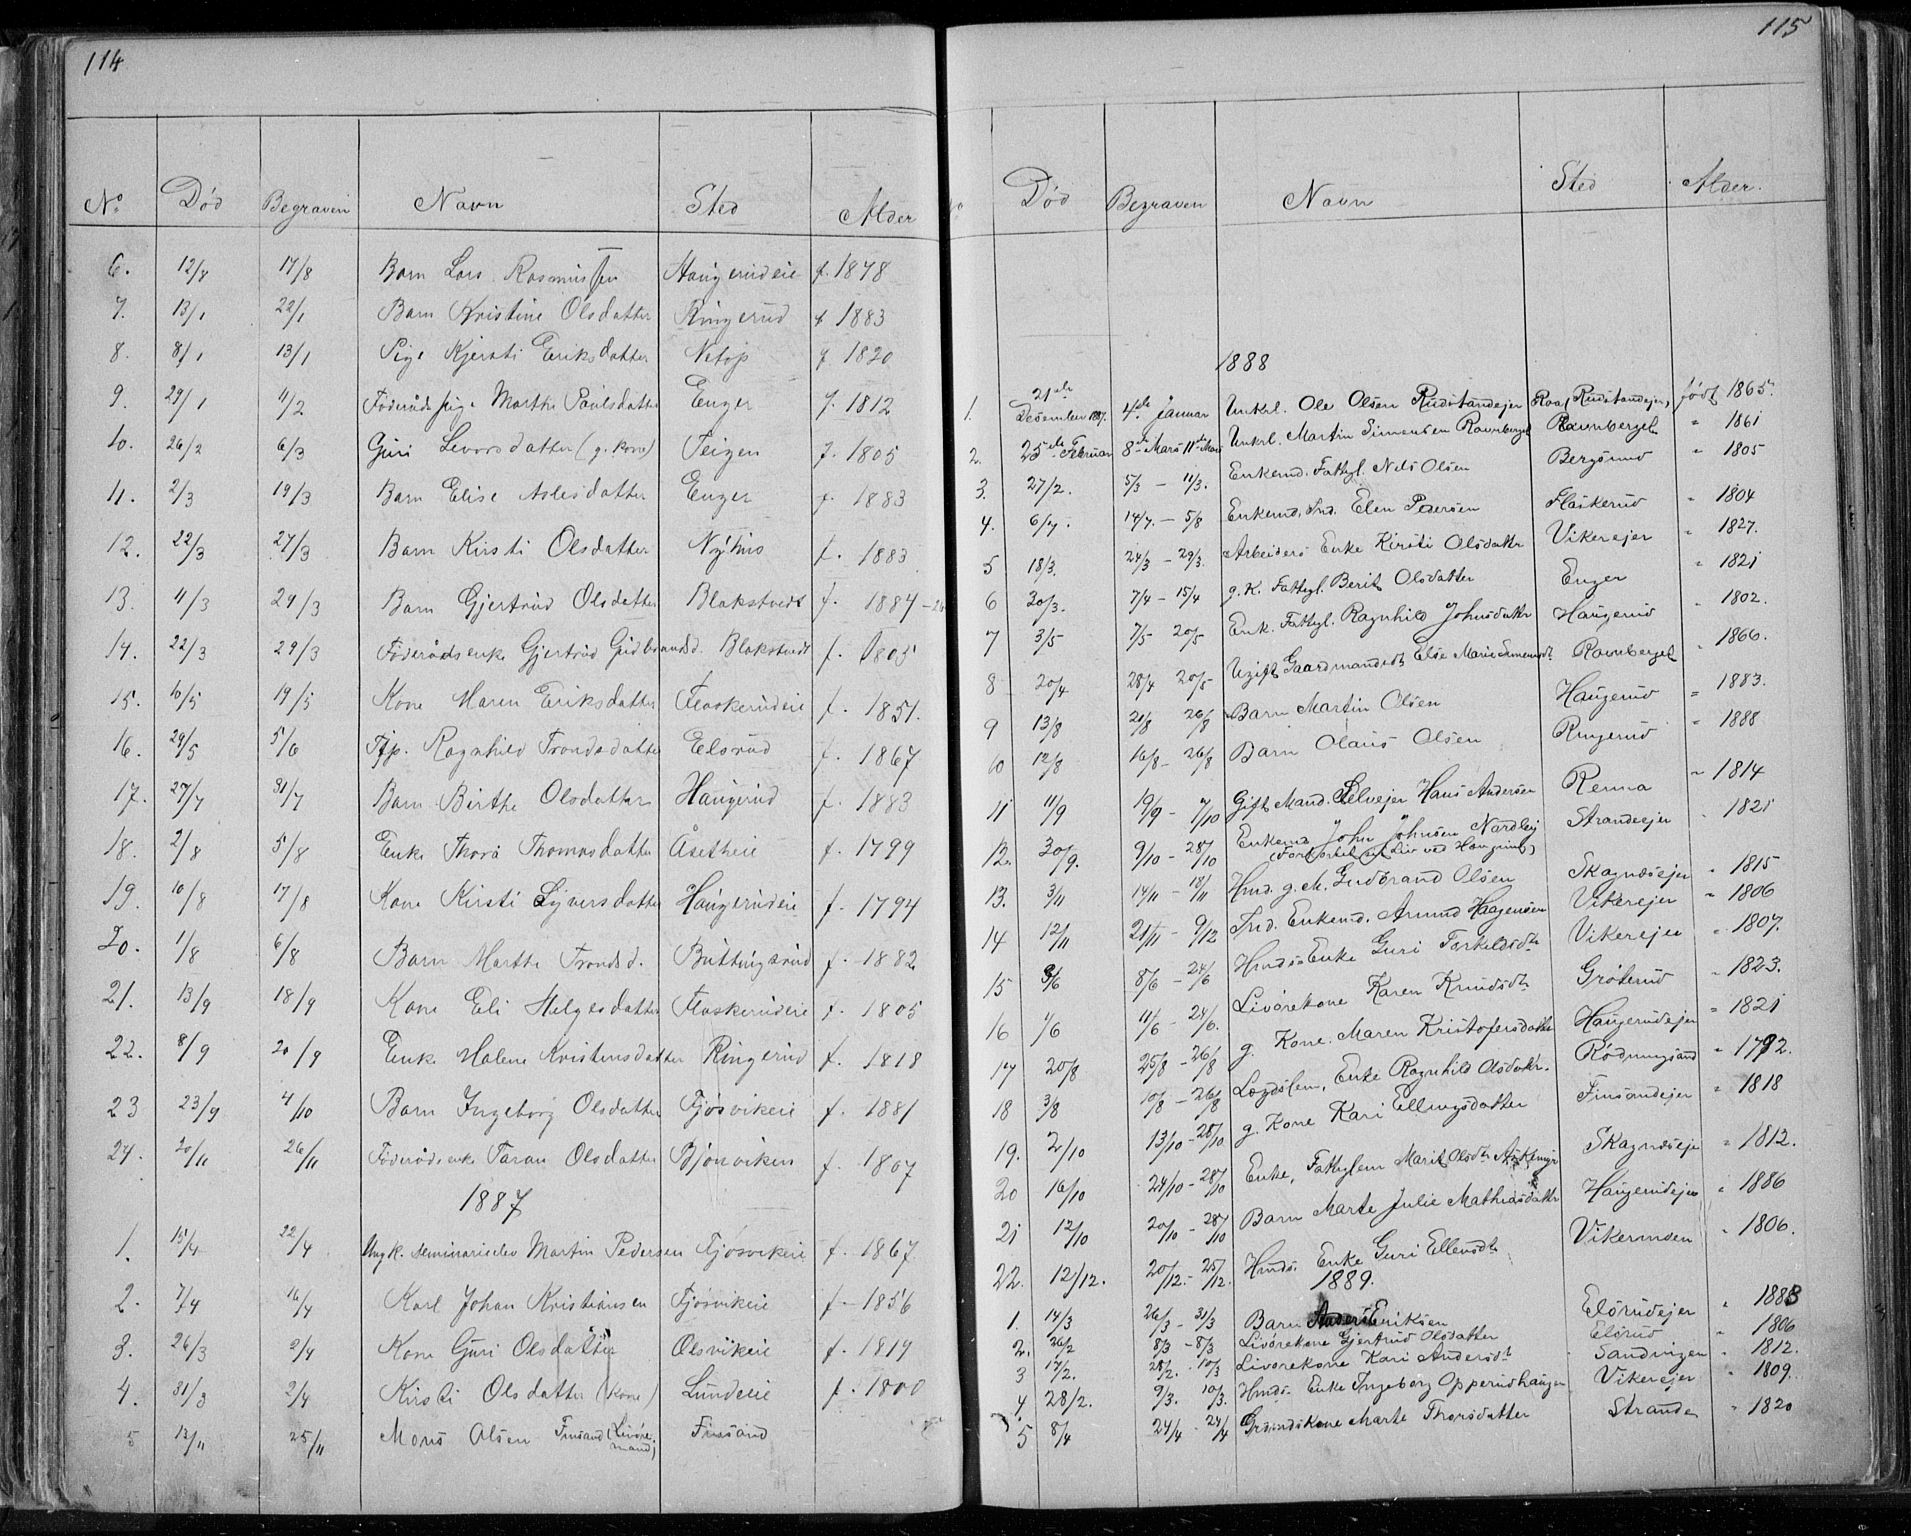 114
No Død Begraven Navn Sted Alder
6. 12/8 17/8 Barn Lars Rasmussen Haugerudeie f. 1878
7. 13/1 22/1 Barn Kristine Olsdatter Ringerud f 1883
8. 8/1 13/1 Pige Kjersti Eriksdatter f 1820
9. 29/1 11/2 Føderåds pige Marthe Paulsdatter Enger f. 1812
10. 26/2 6/3 Guri Levorsdatter (g. kone) Teigen f. 1805
11. 2/3 19/3 Barn Elise Aslesdatter Enger f. 1883
12. 22/3 27/3 Barn Kirsti Olsdatter f. 1883
13. 11/3 29/3 Barn Gjertrud Olsdatter Blakstvedt f. 1884
14. 22/3 29/3 Føderådsenke Gjertrud Gudbrandsd. Blakstvedt f. 1805
15. 10/5 19/5 Kone Maren Eriksdatter Flaskerudeie f. 1851.
16. 29/5 5/6 Ragnhild Trondsdatter Elsrud f. 1867
17. 27/7 31/7 Barn Birthe Olsdatter Haugerud f. 1883
18. 2/8 5/8 Enke Thora Thomasdatter Åsetheie f. 1799
19. 10/8 17/8 Kone Kirsti Syversdatter Haugerudeie f. 1794
20. 1/8 6/8 Barn Marthe Trondsd. Buttingsrud f. 1882
21. 13/9 18/9 Kone Eli Helgesdatter Flaskerudeie f. 1805
22. 8/9 20/9 Enke Halene Kristensdatter Ringerud f. 1818
23 23/9 4/10 Barn Ingeborg Olsdatter Tjøsvikeie f. 1881
24. 20/11 26/11 Føderådsenke Taran Olsdatter Bjønviken f. 1807
1887
1. 15/4 22/4 Ungk. Seminarielev Martin Pedersen Tjøsvikeie f. 1867
2. 7/4 16/4 Karl Johan Kristiansen Tjøsvikeie f 1856
3. 26/3 2/4 Kone Guri Olsdatter Olsvikeie f. 1819
4. 31/3 2/4 Kirsti Olsdatter (Kone) Lundeie f. 1800
5 13/11 25/11 Mons Olsen Finsand (Livøre-mand) Finsand
115
Død Begraven Navn Sted Alder.
1888
1. 21de Desember 1887. 4de Januar Unkrl. Ole Olsen Rudstandejer Roa, Rudstandejer, født 1865.
2. 25de Februar 8de Mars 11te Mars Unkrl. Martin Simensen Ravnberget Ravnberget " 1861
3. 27/2. 5/3 - 11/3. Enkemd. Fattigl. Nils Olsen Bergsund " 1805
4. 6/7. 14/7. - 5/8 Enkemd. Ind. Elen Pedersen Flaskerud " 1804
5 18/3. 24/3 - 29/3. Arbeiders Enke Kirsti Olsdattr Vikerejer " 1827.
6 30/3. 7/4 - 15/4 g. K. Fattigl. Berit Olsdatter Enger " 1821
7 3/5 7/5 20/5 Enk. Fattigl. Ragnhild Johnsdattr Haugerud " 1802.
8 20/4 28/4 20/5 Ugift Gaardmandsdt. Else Marie Simensdt. Ravnberget " 1866.
9 13/8 21/8 26/8 Barn Martin Olsen Haugerud " 1883.
10 12/8 16/8 - 26/8 Barn Olaus Olsen Ringerud " 1888
11 11/9 19/9 - 7/10 Gift Mand. Selvejer Hans Andersen Renna " 1814
12. 30/9. 9/10 - 28/10 Enkemd John Johnsen Nordby Strandejer " 1821
(Forkortet sit Liv ved Hængning)
13. 3/11 14/11 - 18/11 Hmd. g. M. Gudbrand Olsen Skagnæsejer " 1815
14 12/11 21/11 - 9/12 Ind. Enkemd. Amund Haagensen Vikerejer " 1806
15 3/6 8/6 - 24/6 Hmds Enke Guri Torkildsdt. Vikerejer " 1807.
16 1/6 11/6 - 24/6. Livørekone Karen Knudsdt. Grøterud " 1823.
17 20/8 25/8 - 26/8 g. Kone. Maren Kristofersdatter Haugerudejer " 1821
18 3/8 10/8 - 26/8 Lægdslem, Enke Ragnhild Olsdattr. Rødningsand " 1792.
19. 2/10 13/10 - 28/10 g. Kone Kari Ellingsdatter Finsandejer " 1818
20 16/10 24/10 - 28/10 Enke, Fattiglem Marit Olsdtr. Skagnæseje " 1812.
21 12/10 20/10 - 28/10 Barn Marte Julie Mathiasdattr Haugerudejer " 1886
22. 12/12. 20/12. - 25/12. Hmds. Enke Guri Ellensdt. Vikermoen " 1806.
1889.
1. 14/3 26/3 - 31/3 Barn Anders Eriksen Elsrudejer " 1883
2. 26/2 8/3 - 8/3 Livørekone Gjertrud Olsdatter Elsrud " 1806
3 17/2. 28/2. 10/3 Livørekone Kari Andersdt. Sandvigen " 1812.
4 28/2. 9/3. 10/3. Hmds. Enke Ingeborg Opperudhaugen Vikerejer " 1809.
5 8/4 24/4 - 24/4 Grsmdskone Marte Thorsdatter Strande " 1820